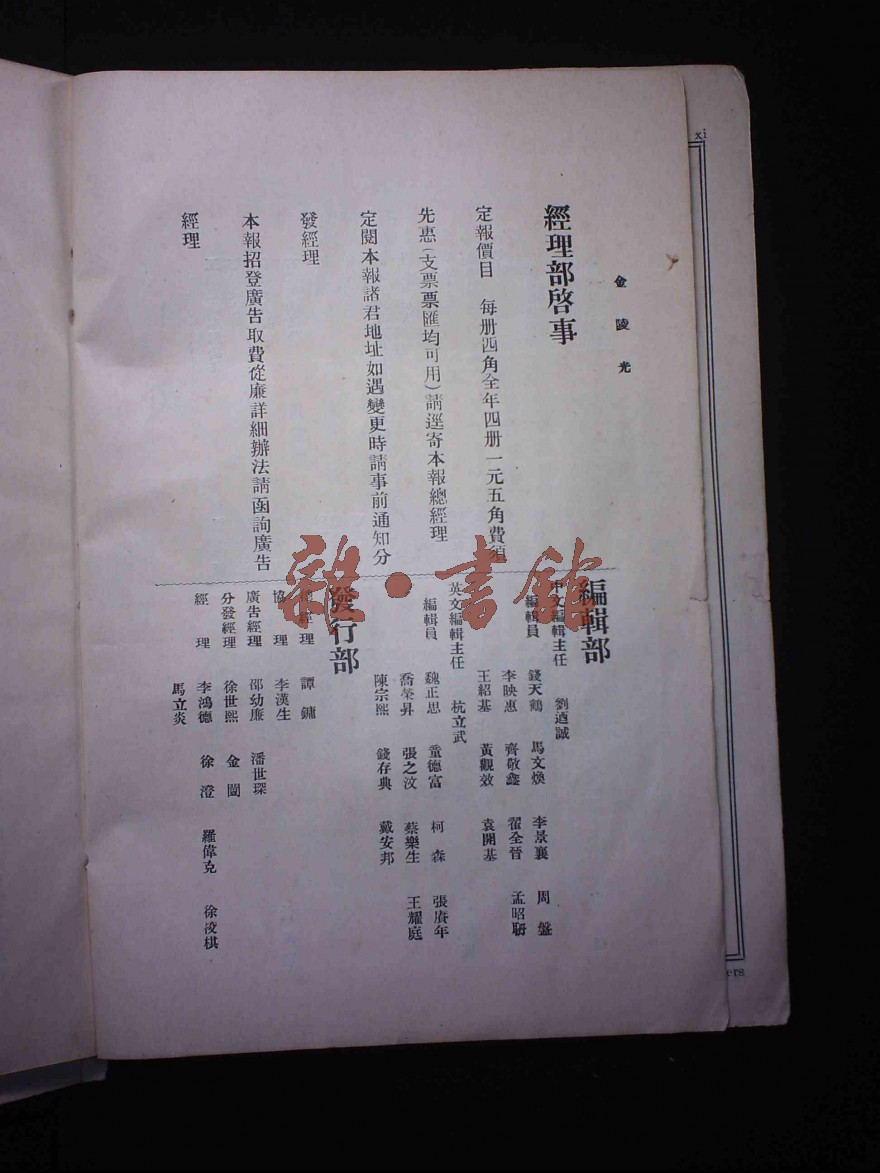 金陵光
經理部啓事
定報價目　每册四角全年四册一元五角費須
先惠(支票票匯均可用)請逕寄本報總經理
定閱本報諸君地址如遇變更時請事前通知分
發經理
本報招登廣告取費從廉詳細辦法請函詢廣告
經理
編輯部
中文編輯主任　劉迺誠
編輯員　錢天鶴　馬文煥　李景襄　周盤
李映惠　齊敬鑫　翟全晉　孟昭
王紹基　黃觀效　袁開基
英文編輯主任　杭立武
編輯員　魏正思　童德富　柯森　張賡年
喬榮昇　張之汶　蔡樂生　王耀庭
陳宗熙　錢存典　戴安邦
發行部
總經理　譚鏞
協理　李漢生
廣告經理　邵幼廉　潘世琛
分發經理　徐世熙　金閩
經理　李鴻德　徐澄　羅偉克　徐淩棋
馬立炎
雜·書館
xi
ers